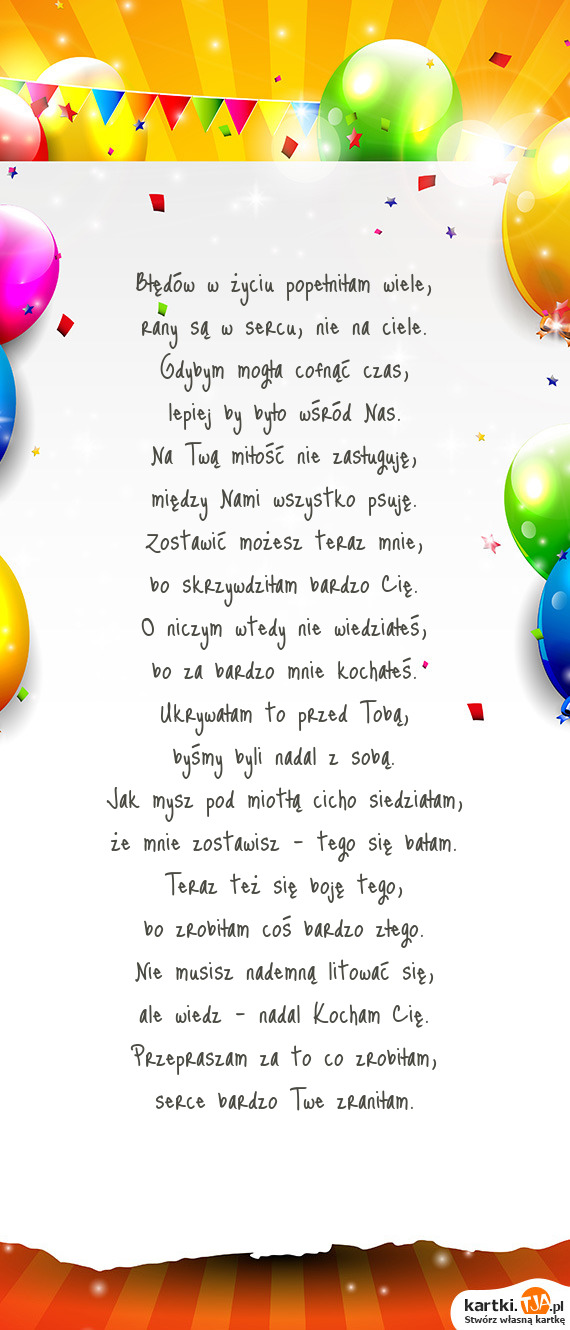 Błędów w życiu popełniłam wiele,
rany są w sercu, nie na ciele.
Gdybym mogła cofnąć czas,
lepiej by było wśród Nas.
Na Twą miłość nie zasługuję,
między Nami wszystko psuję.
Zostawić możesz teraz mnie,
bo skrzywdziłam bardzo Cię.
O niczym wtedy nie wiedziałeś,
bo za bardzo mnie kochałeś.
Ukrywałam to przed Tobą,
byśmy byli nadal z sobą.
Jak mysz pod miotłą cicho siedziałam,
że mnie zostawisz - tego się bałam.
Teraz też się boję tego,
bo zrobiłam coś bardzo złego.
Nie musisz nademną litować się,
ale wiedz - nadal Kocham Cię.
Przepraszam za to co zrobiłam,
serce bardzo Twe zraniłam.
kartki.TJA.pl
Stwórz własną kartkę